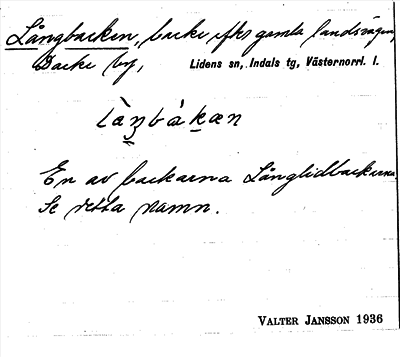 Långbacken, backe efter gamla landsvägen,
Backe by, Lidens sn, Indals tg, Västernorrl. l.
En av backarna Långlidbackarna
Se detta namn.
VALTER JANSSON 1936